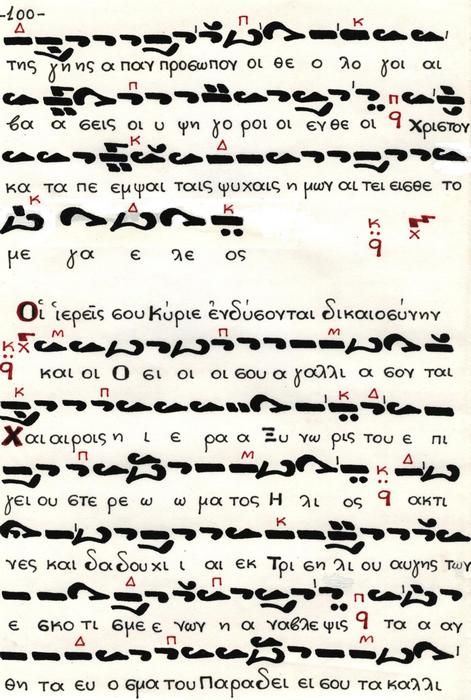 -100-
της γης ης α παν προσωπου οι θε ο λο γοι αι
βα α σεις οι υ ψη γο ροι οι εν θε οι Χριστον
κα τα πε εμψαι ταις ψυχαις η μων αι τει εισθε το
με γα ε λε ος
Οἱ ἱερεῖς σου Κύριε ἐνδύσονται δικαιοσύνην
και οι Ο σι οι οι σου α γαλλι α σον ται
Χαι αι ροις η ι ε ρα α Ξυ νω ρις του ε πι
γει ου στε ρε ω ω μα τος Η λι ος ακτι
νες και δα δου χι ι αι εκ Τρι ση λι ου αυγης των
ε σκο τι σμε ε νων η α ναβλε ψις τα α αν
θη τα ευ ο σμα του Παραδει ει σου τα καλλι